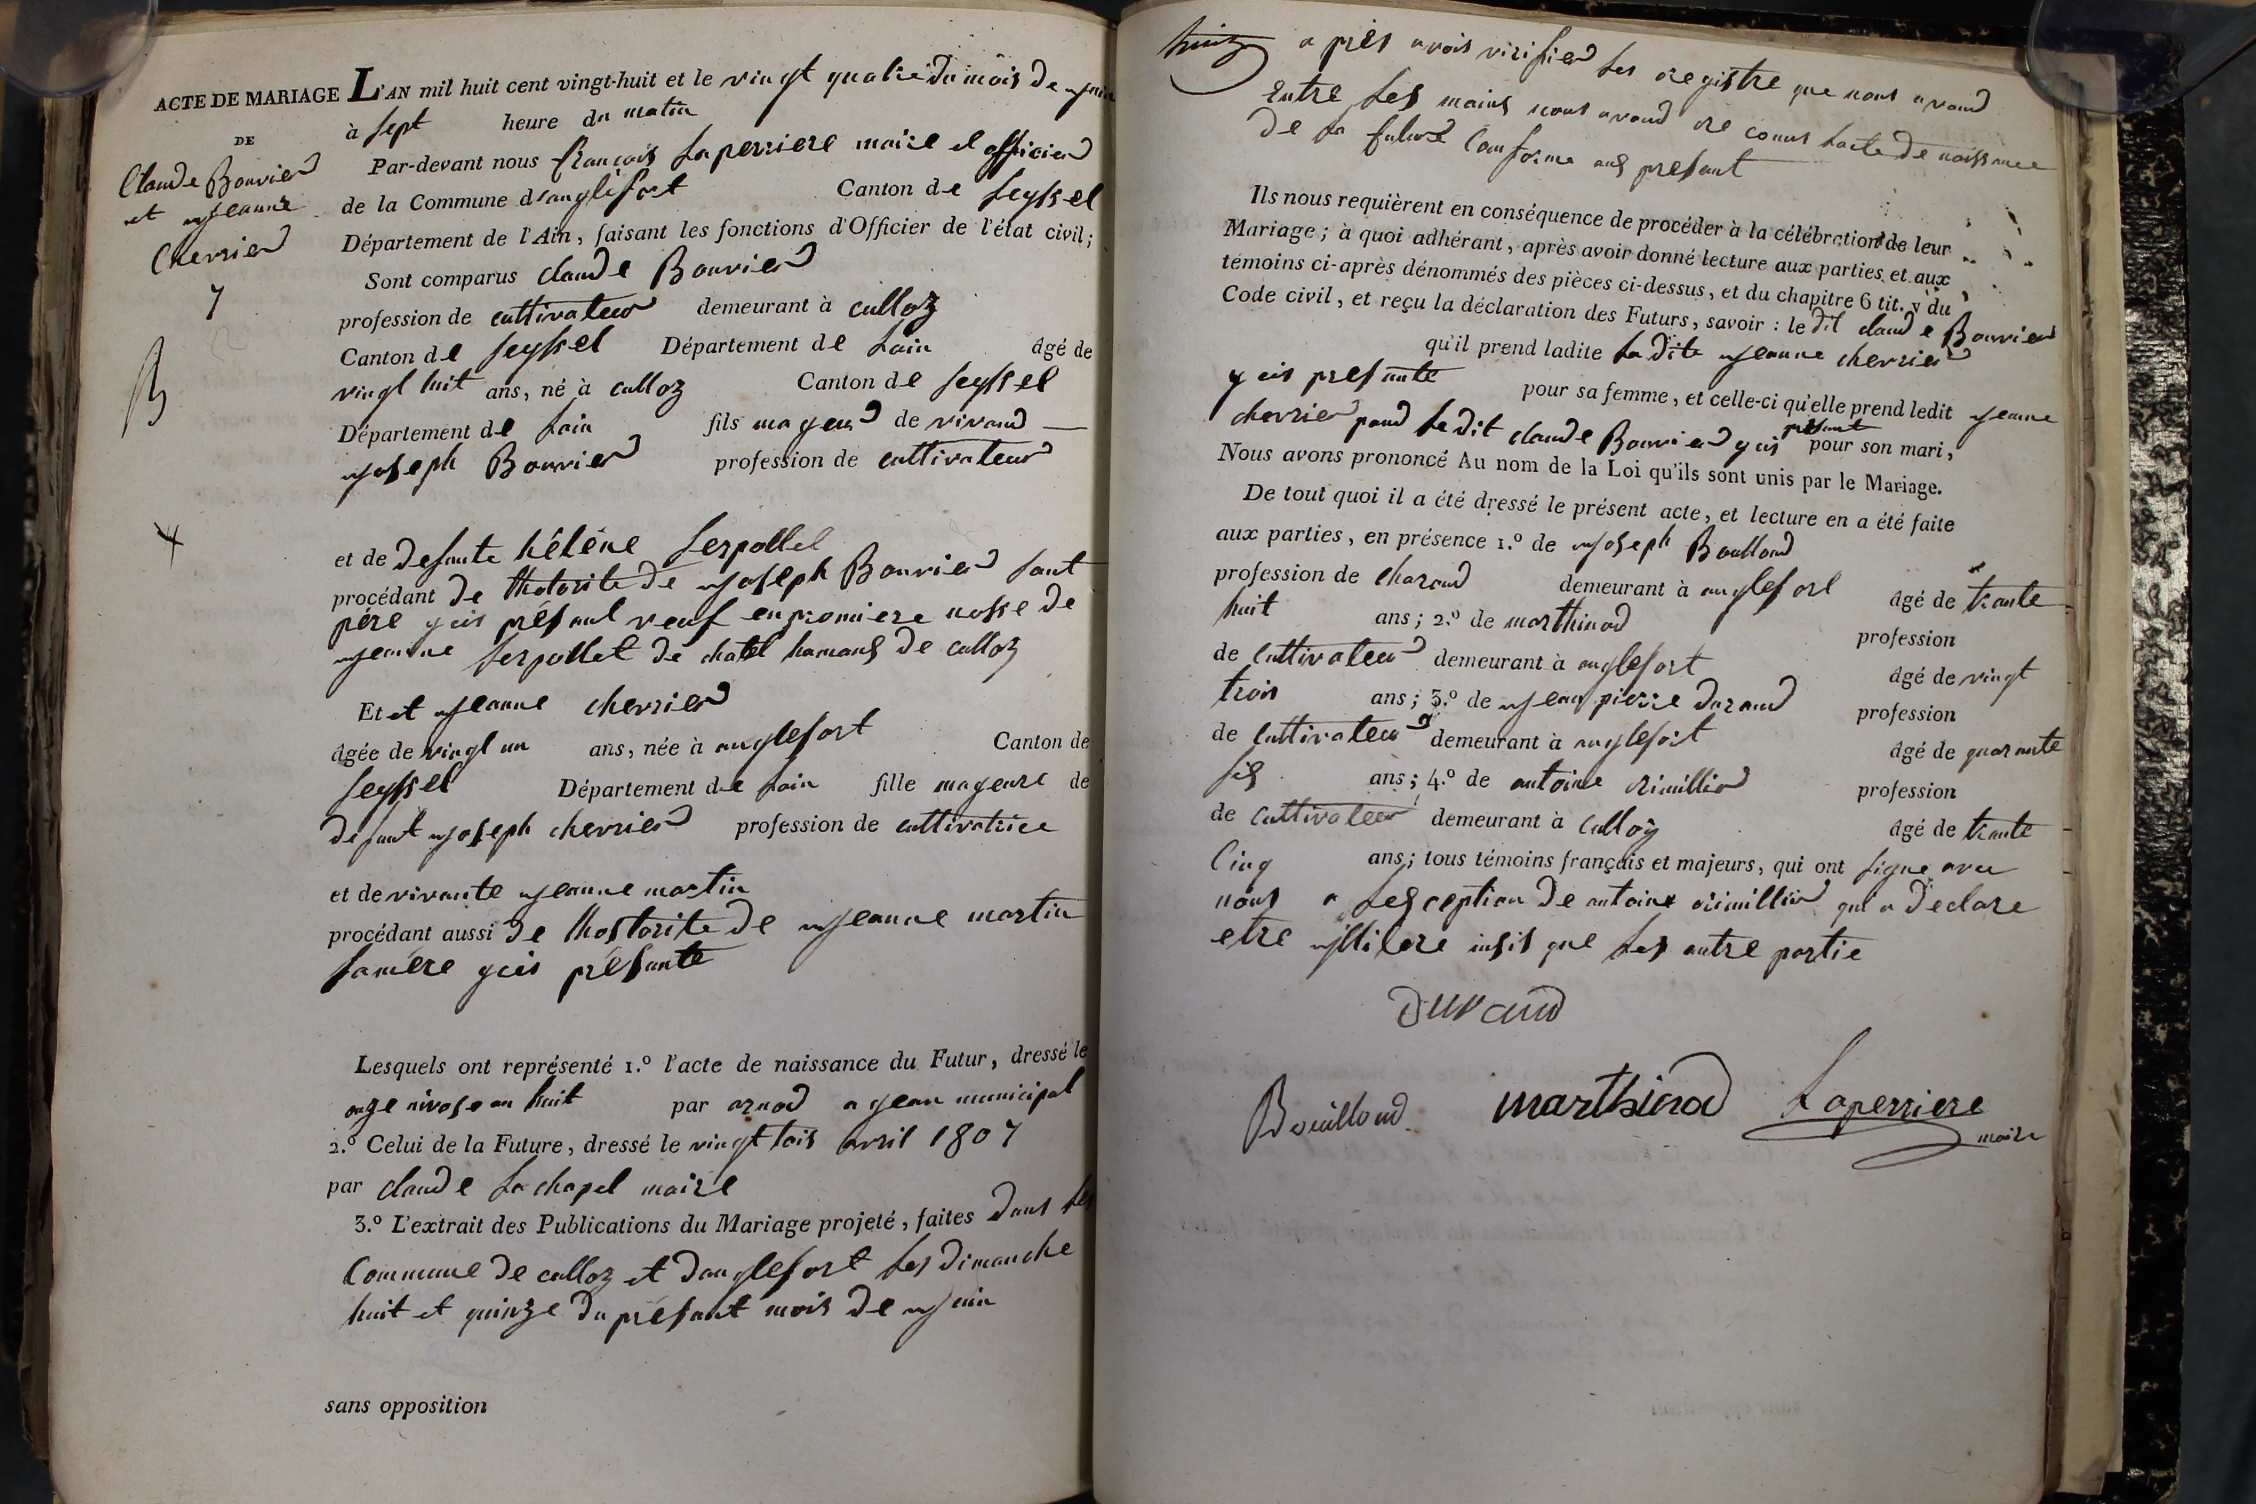 ACTE DE MARIAGE
DE
Claude Bouvier
et Jeanne
Chevrier
7
L'AN mil huit cent vingt-huit et le vingt quatre du mois de juin
à sept heure du matin
Par-devant nous françois Laperriere maire et officier
de la Commune d'anglefort Canton de Seyssel
Département de l'Ain, faisant les fonctions d'Officier de l'état civil;
Sont comparus claude Bouvier
profession de cultivateur demeurant à culloz
Canton de Seyssel Département de Lain âgé de
vingt huit ans, né à culloz Canton de Seyssel
Département de Lain fils mageur de vivand
Joseph Bouvier profession de cultivateur
et de defunte hélène Serpollet
procédant de lhotorite de Joseph Bouvier sont
père ycis présant veuf en promiere nosse de
Jeanne Serpollet de chatel hamaus de culloz
Et et Jeanne chevrier
âgée de vingt un ans, née à anglefort Canton de
Seyssel Département de Lain fille mageure de
defunt Joseph chevrier profession de cultivatrice
et de vivante Jeanne martin
procédant aussi de lhotorite de Jeanne martin
samère ycis présante
Lesquels ont représenté 1.º l'acte de naissance du Futur, dressé le
onze nivose an huit par arnod agean municipal
2.º Celui de la Future, dressé le vingt tois avril 1807
par claude Lachapel maire
3.º L'extrait des Publications du Mariage projeté, faites dans les
Commune de culloz et danglefort les dimanche
huit et quinze du présant mois de juin
sans opposition
après avoir virifier les registre que nous avond
entre les mains nous avond reconus lacte de naissance
de la future Conforme aus presant
Ils nous requièrent en conséquence de procéder à la célébration de leur
Mariage; à quoi adhérant, après avoir donné lecture aux parties et aux
témoins ci-après dénommés des pièces ci-dessus, et du chapitre 6 tit. v du
Code civil, et reçu la déclaration des Futurs, savoir: le dit claude Bouvier
qu'il prend ladite la dite Jeanne chevrier
ycis presante pour sa femme, et celle-ci qu'elle prend ledit Jeanne
chevrier pand le dit claude Bouvier ycis présant pour son mari,
Nous avons prononcé Au nom de la Loi qu'ils sont unis par le Mariage.
De tout quoi il a été dressé le présent acte, et lecture en a été faite
aux parties, en présence 1.º de Joseph Boulloud
profession de charond demeurant à anglefort âgé de trante
huit ans; 2.º de marthinod profession
de Cultivateur demeurant à anglefort âgé de vingt
trois ans; 3.º de Jean pierre durand profession
de Cultivateur demeurant à anglefort âgé de quarante
sis ans; 4.º de antoine rimillier profession
de Cultivateur demeurant à Culloz âgé de trante
Cinq ans; tous témoins français et majeurs, qui ont signe avec
nous a lesception de antoine rimillier qui a déclare
etre illitere insis que les autre partie
Durand
Bouilloud marthinod Laperriere
maire